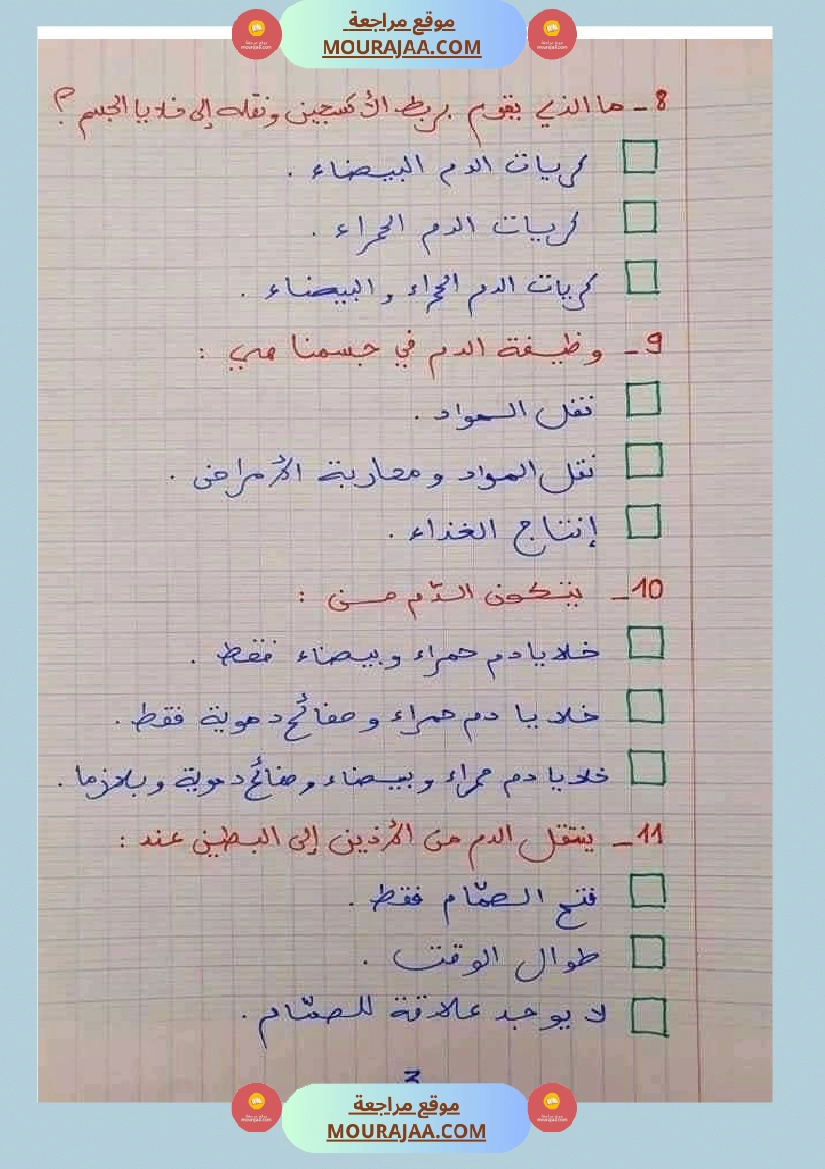 موقع مراجعة
MOURAJAA.COM
8 - ما الذي يقوم بربط الأكسجين ونقله إلى خلايا الجسم ؟
كريات الدم البيضاء .
كريات الدم الحمراء .
كريات الدم الحمراء والبيضاء .
9 - وظيفة الدم في جسمنا هي :
نقل المواد .
نقل المواد ومحاربة الأمراض .
إنتاج الغذاء .
10 - يتكون الدّم من :
خلايا دم حمراء وبيضاء فقط .
خلايا دم حمراء وصفائح دموية فقط .
خلايا دم حمراء وبيضاء وصفائح دموية وبلازما .
11 - ينتقل الدم من الأذين إلى البطين عند :
فتح الصمّام فقط .
طوال الوقت .
لا يوجد علاقة للصمّام .
3
موقع مراجعة
MOURAJAA.COM